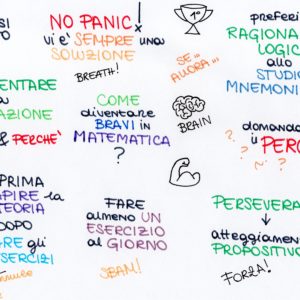 NO PANIC!
vi è SEMPRE una
SOLUZIONE
BREATH!
1°
preferi
RAGIONA
LOGIC
allo
STUDI
MNEMONI
SE...
ALLORA...
ENTARE
AZIONE
& PERCHÈ
COME
diventare
BRAVI in
MATEMATICA
?
BRAIN
domand
il PERC
? ? ? ?
PRIMA
APIRE la
TEORIA
DOPO
RE gli
SERCIZI
FARE
almeno UN
ESERCIZIO
al GIORNO
SBAM!
PERSEVERA
atteggiamen
PROPOSITIVO
FORZA!